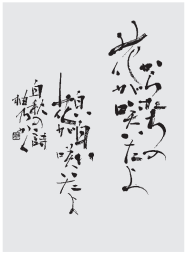 からたちの
花が咲いたよ
白い白い
花が咲いたよ
白秋の詩
かく